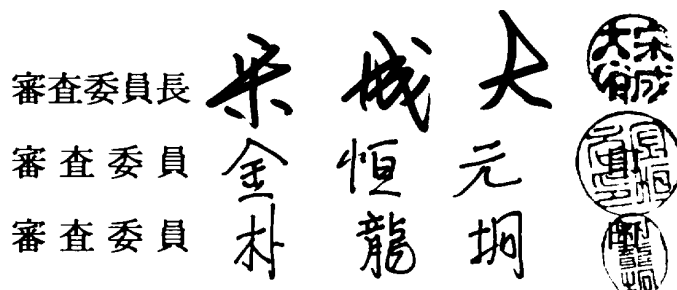 審査委員長 宋 城 大
審査委員 金 恒 元
審査委員 朴 龍 垌